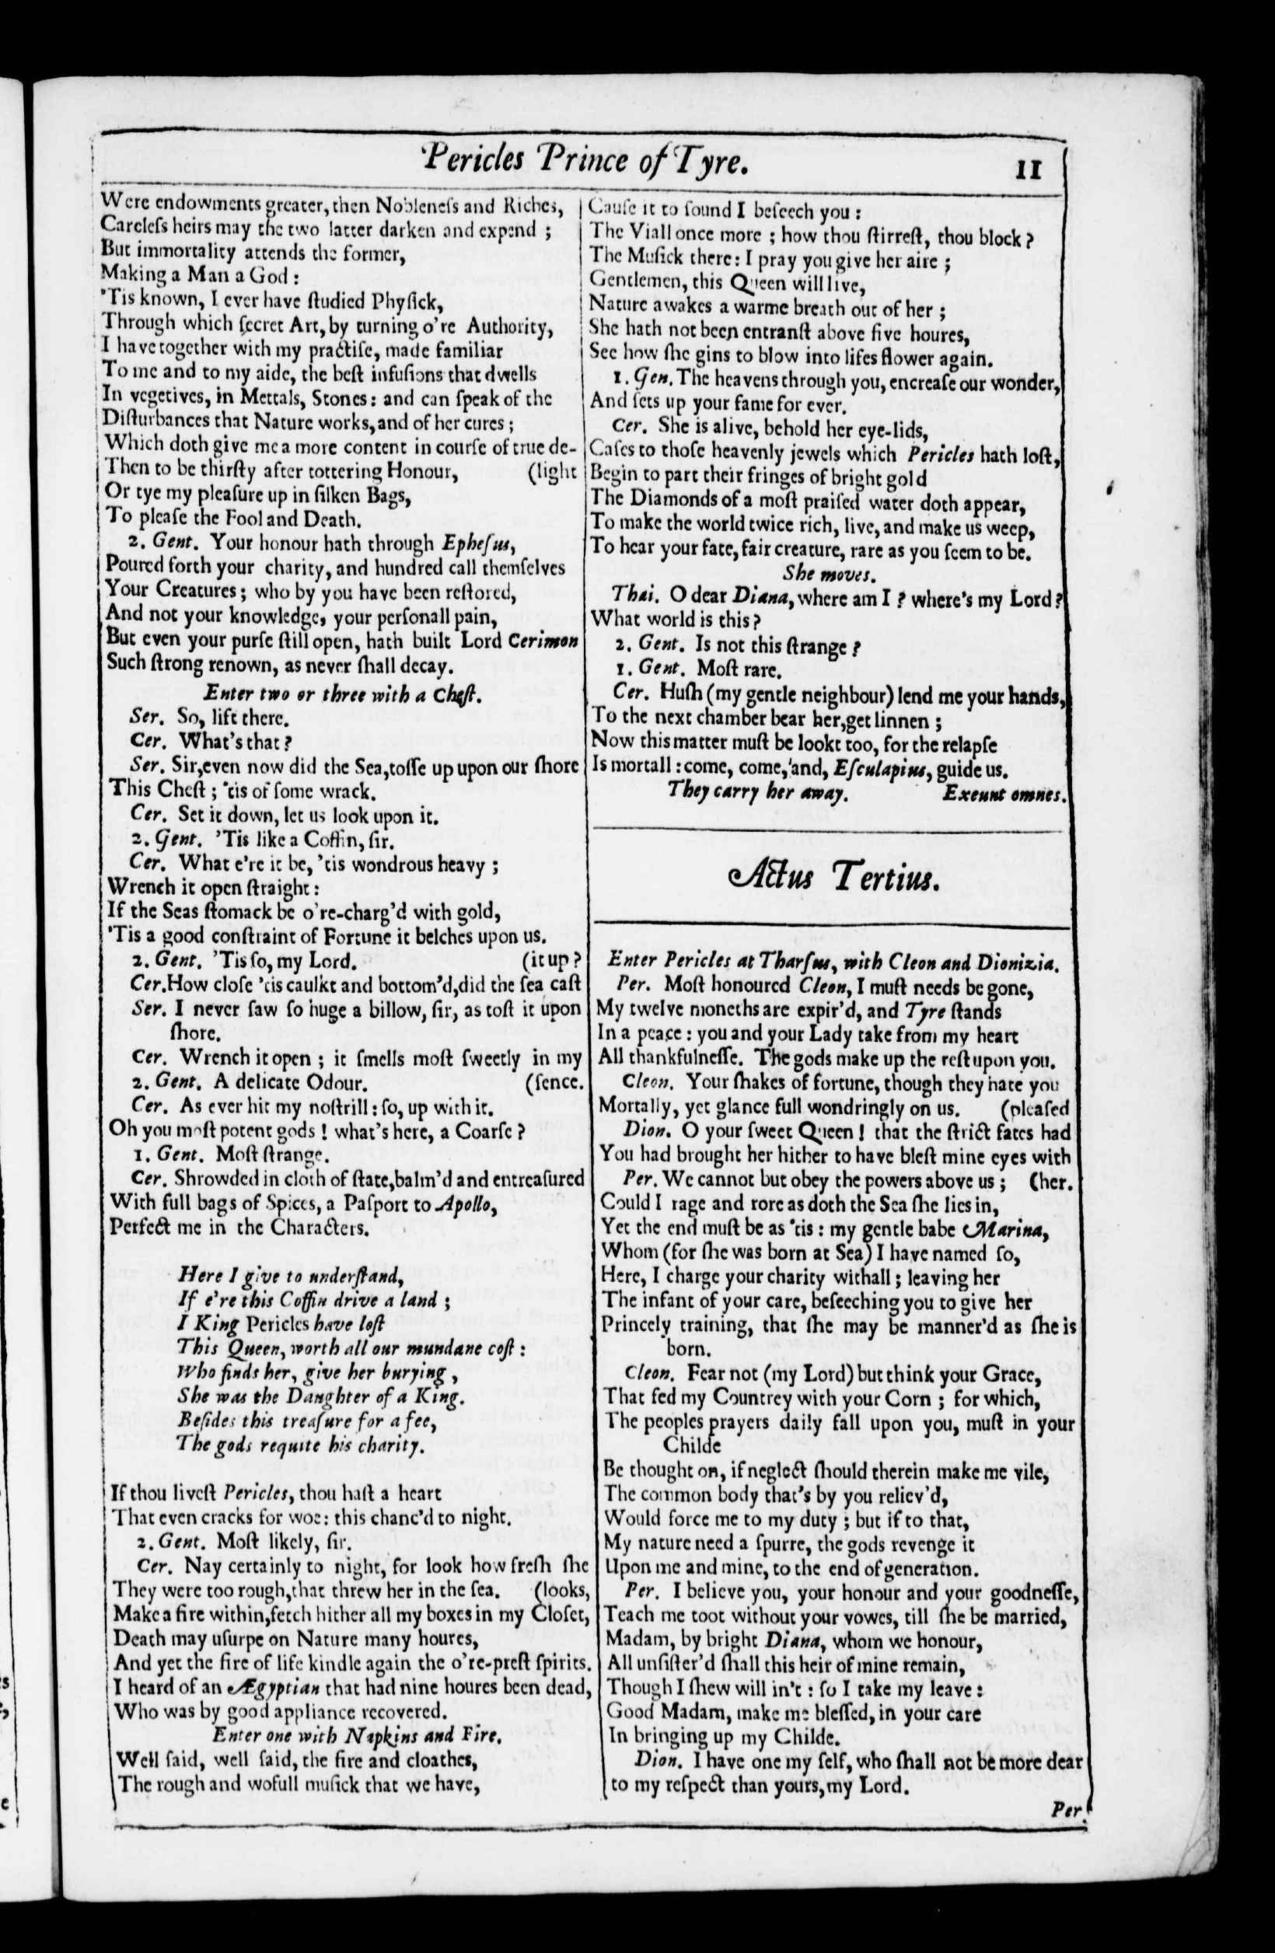 Pericles Prince of Tyre.
11
Were endowments greater, then Nobleneſs and Riches,
Careleſs heirs may the two latter darken and expend ;
But immortality attends the former,
Making a Man a God :
'Tis known, I ever have ſtudied Phyſick,
Through which ſecret Art, by turning o're Authority,
I have together with my practiſe, made familiar
To me and to my aide, the beſt infuſions that dwells
In vegetives, in Mettals, Stones : and can ſpeak of the
Diſturbances that Nature works, and of her cures ;
Which doth give me a more content in courſe of true de-
Then to be thirſty after tottering Honour, (light
Or tye my pleaſure up in ſilken Bags,
To pleaſe the Fool and Death.
2. Gent. Your honour hath through Epheſus,
Poured forth your charity, and hundred call themſelves
Your Creatures ; who by you have been reſtored,
And not your knowledge, your perſonall pain,
But even your purſe ſtill open, hath built Lord Cerimon
Such ſtrong renown, as never ſhall decay.
Enter two or three with a Cheſt.
Ser. So, lift there.
Cer. What's that ?
Ser. Sir, even now did the Sea, toſſe up upon our ſhore
This Cheſt ; 'tis of ſome wrack.
Cer. Set it down, let us look upon it.
2. Gent. 'Tis like a Coffin, ſir.
Cer. What e're it be, 'tis wondrous heavy ;
Wrench it open ſtraight :
If the Seas ſtomack be o're-charg'd with gold,
'Tis a good conſtraint of Fortune it belches upon us.
2. Gent. 'Tis ſo, my Lord. (it up ?
Cer. How cloſe 'tis caulkt and bottom'd, did the ſea caſt
Ser. I never ſaw ſo huge a billow, ſir, as toſt it upon
ſhore.
Cer. Wrench it open ; it ſmells moſt ſweetly in my
2. Gent. A delicate Odour. (ſence.
Cer. As ever hit my noſtrill : ſo, up with it.
Oh you moſt potent gods ! what's here, a Coarſe ?
1. Gent. Moſt ſtrange.
Cer. Shrowded in cloth of ſtate, balm'd and entreaſured
With full bags of Spices, a Paſport to Apollo,
Perfect me in the Characters.
Here I give to underſtand,
If e're this Coffin drive a land ;
I King Pericles have loſt
This Queen, worth all our mundane coſt :
Who finds her, give her burying ,
She was the Daughter of a King.
Beſides this treaſure for a fee,
The gods requite his charity.
If thou liveſt Pericles, thou haſt a heart
That even cracks for woe : this chanc'd to night.
2. Gent. Moſt likely, ſir.
Cer. Nay certainly to night, for look how freſh ſhe
They were too rough, that threw her in the ſea. (looks,
Make a fire within, fetch hither all my boxes in my Cloſet,
Death may uſurpe on Nature many houres,
And yet the fire of life kindle again the o're-preſt ſpirits.
I heard of an Ægyptian that had nine houres been dead,
Who was by good appliance recovered.
Enter one with Napkins and Fire.
Well ſaid, well ſaid, the fire and cloathes,
The rough and wofull muſick that we have,
Cauſe it to ſound I beſeech you :
The Viall once more ; how thou ſtirreſt, thou block ?
The Muſick there : I pray you give her aire ;
Gentlemen, this Queen will live,
Nature awakes a warme breath out of her ;
She hath not been entranſt above five houres,
See how ſhe gins to blow into lifes flower again.
1. Gen. The heavens through you, encreaſe our wonder,
And ſets up your fame for ever.
Cer. She is alive, behold her eye-lids,
Caſes to thoſe heavenly jewels which Pericles hath loſt,
Begin to part their fringes of bright gold
The Diamonds of a moſt praiſed water doth appear,
To make the world twice rich, live, and make us weep,
To hear your fate, fair creature, rare as you ſeem to be.
She moves.
Thai. O dear Diana, where am I ? where's my Lord ?
What world is this ?
2. Gent. Is not this ſtrange ?
1. Gent. Moſt rare.
Cer. Huſh (my gentle neighbour) lend me your hands,
To the next chamber bear her, get linnen ;
Now this matter muſt be lookt too, for the relapſe
Is mortall : come, come, and, Eſculapius, guide us.
They carry her away. Exeunt omnes.
Actus Tertius.
Enter Pericles at Tharſus, with Cleon and Dionizia.
Per. Moſt honoured Cleon, I muſt needs be gone,
My twelve moneths are expir'd, and Tyre ſtands
In a peace : you and your Lady take from my heart
All thankfulneſſe. The gods make up the reſt upon you.
Cleon. Your ſhakes of fortune, though they hate you
Mortally, yet glance full wondringly on us. (pleaſed
Dion. O your ſweet Queen ! that the ſtrict fates had
You had brought her hither to have bleſt mine eyes with
Per. We cannot but obey the powers above us ; (her.
Could I rage and rore as doth the Sea ſhe lies in,
Yet the end muſt be as 'tis : my gentle babe Marina,
Whom (for ſhe was born at Sea) I have named ſo,
Here, I charge your charity withall ; leaving her
The infant of your care, beſeeching you to give her
Princely training, that ſhe may be manner'd as ſhe is
born.
Cleon. Fear not (my Lord) but think your Grace,
That fed my Countrey with your Corn ; for which,
The peoples prayers daily fall upon you, muſt in your
Childe
Be thought on, if neglect ſhould therein make me vile,
The common body that's by you reliev'd,
Would force me to my duty ; but if to that,
My nature need a ſpurre, the gods revenge it
Upon me and mine, to the end of generation.
Per. I believe you, your honour and your goodneſſe,
Teach me toot without your vowes, till ſhe be married,
Madam, by bright Diana, whom we honour,
All unſiſter'd ſhall this heir of mine remain,
Though I ſhew will in't : ſo I take my leave :
Good Madam, make me bleſſed, in your care
In bringing up my Childe.
Dion. I have one my ſelf, who ſhall not be more dear
to my reſpect than yours, my Lord.
Per